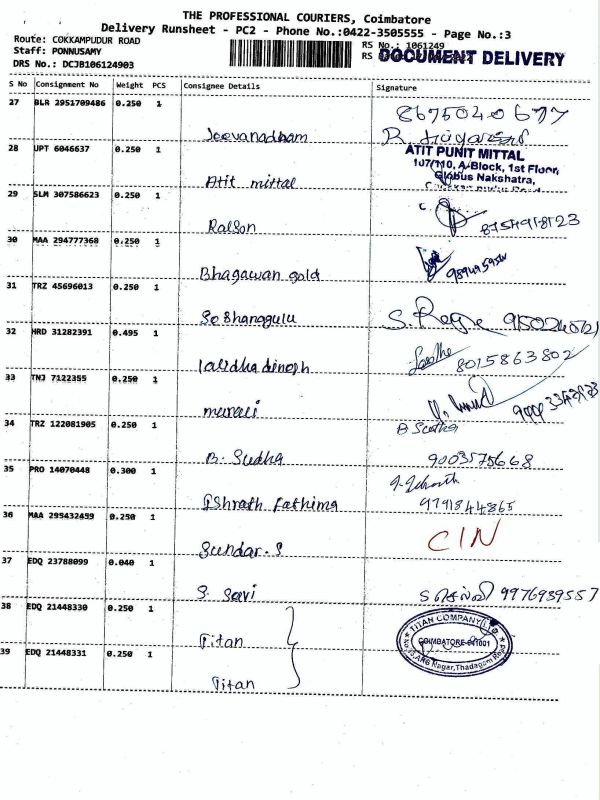 THE PROFESSIONAL COURIERS, Coimbatore
Delivery Runsheet - PC2 - Phone No.:0422-3505555 - Page No.:3
Route: COKKAMPUDUR ROAD
RS No.: 1061249
Staff: PONNUSAMY
RS
DOCUMENT DELIVERY
DRS No.: DCJB106124903
S No Consignment No Weight PCS Consignee Details Signature
27 BLR 2951709486 0.250 1
8675040677
Jeevanadham
28 UPT 6046637 0.250 1
ATIT PUNIT MITTAL
107/110, A-Block, 1st Floor,
Globus Nakshatra,
Atit mittal
29 SLM 307586623 0.250 1
Ralson
30 MAA 294777368 0.250 1
Bhagawan gold
31 TRZ 45696013 0.250 1
32 HRD 31282391 0.495 1
8015863802
33 TNJ 7122355 0.250 1
murali
34 TRZ 122081905 0.250 1
B Sudha
B. Sudha
9003575668
35 PRO 14070448 0.300 1
Ishrath fathima
9791844865
36 MAA 295432459 0.250 1
CIN
Sundar.S
37 EDQ 23788099 0.040 1
S. Savi
9976989557
38 EDQ 21448330 0.250 1
Titan
TITAN COMPANY
COIMBATORE-641001
39 EDQ 21448331 0.250 1
Titan